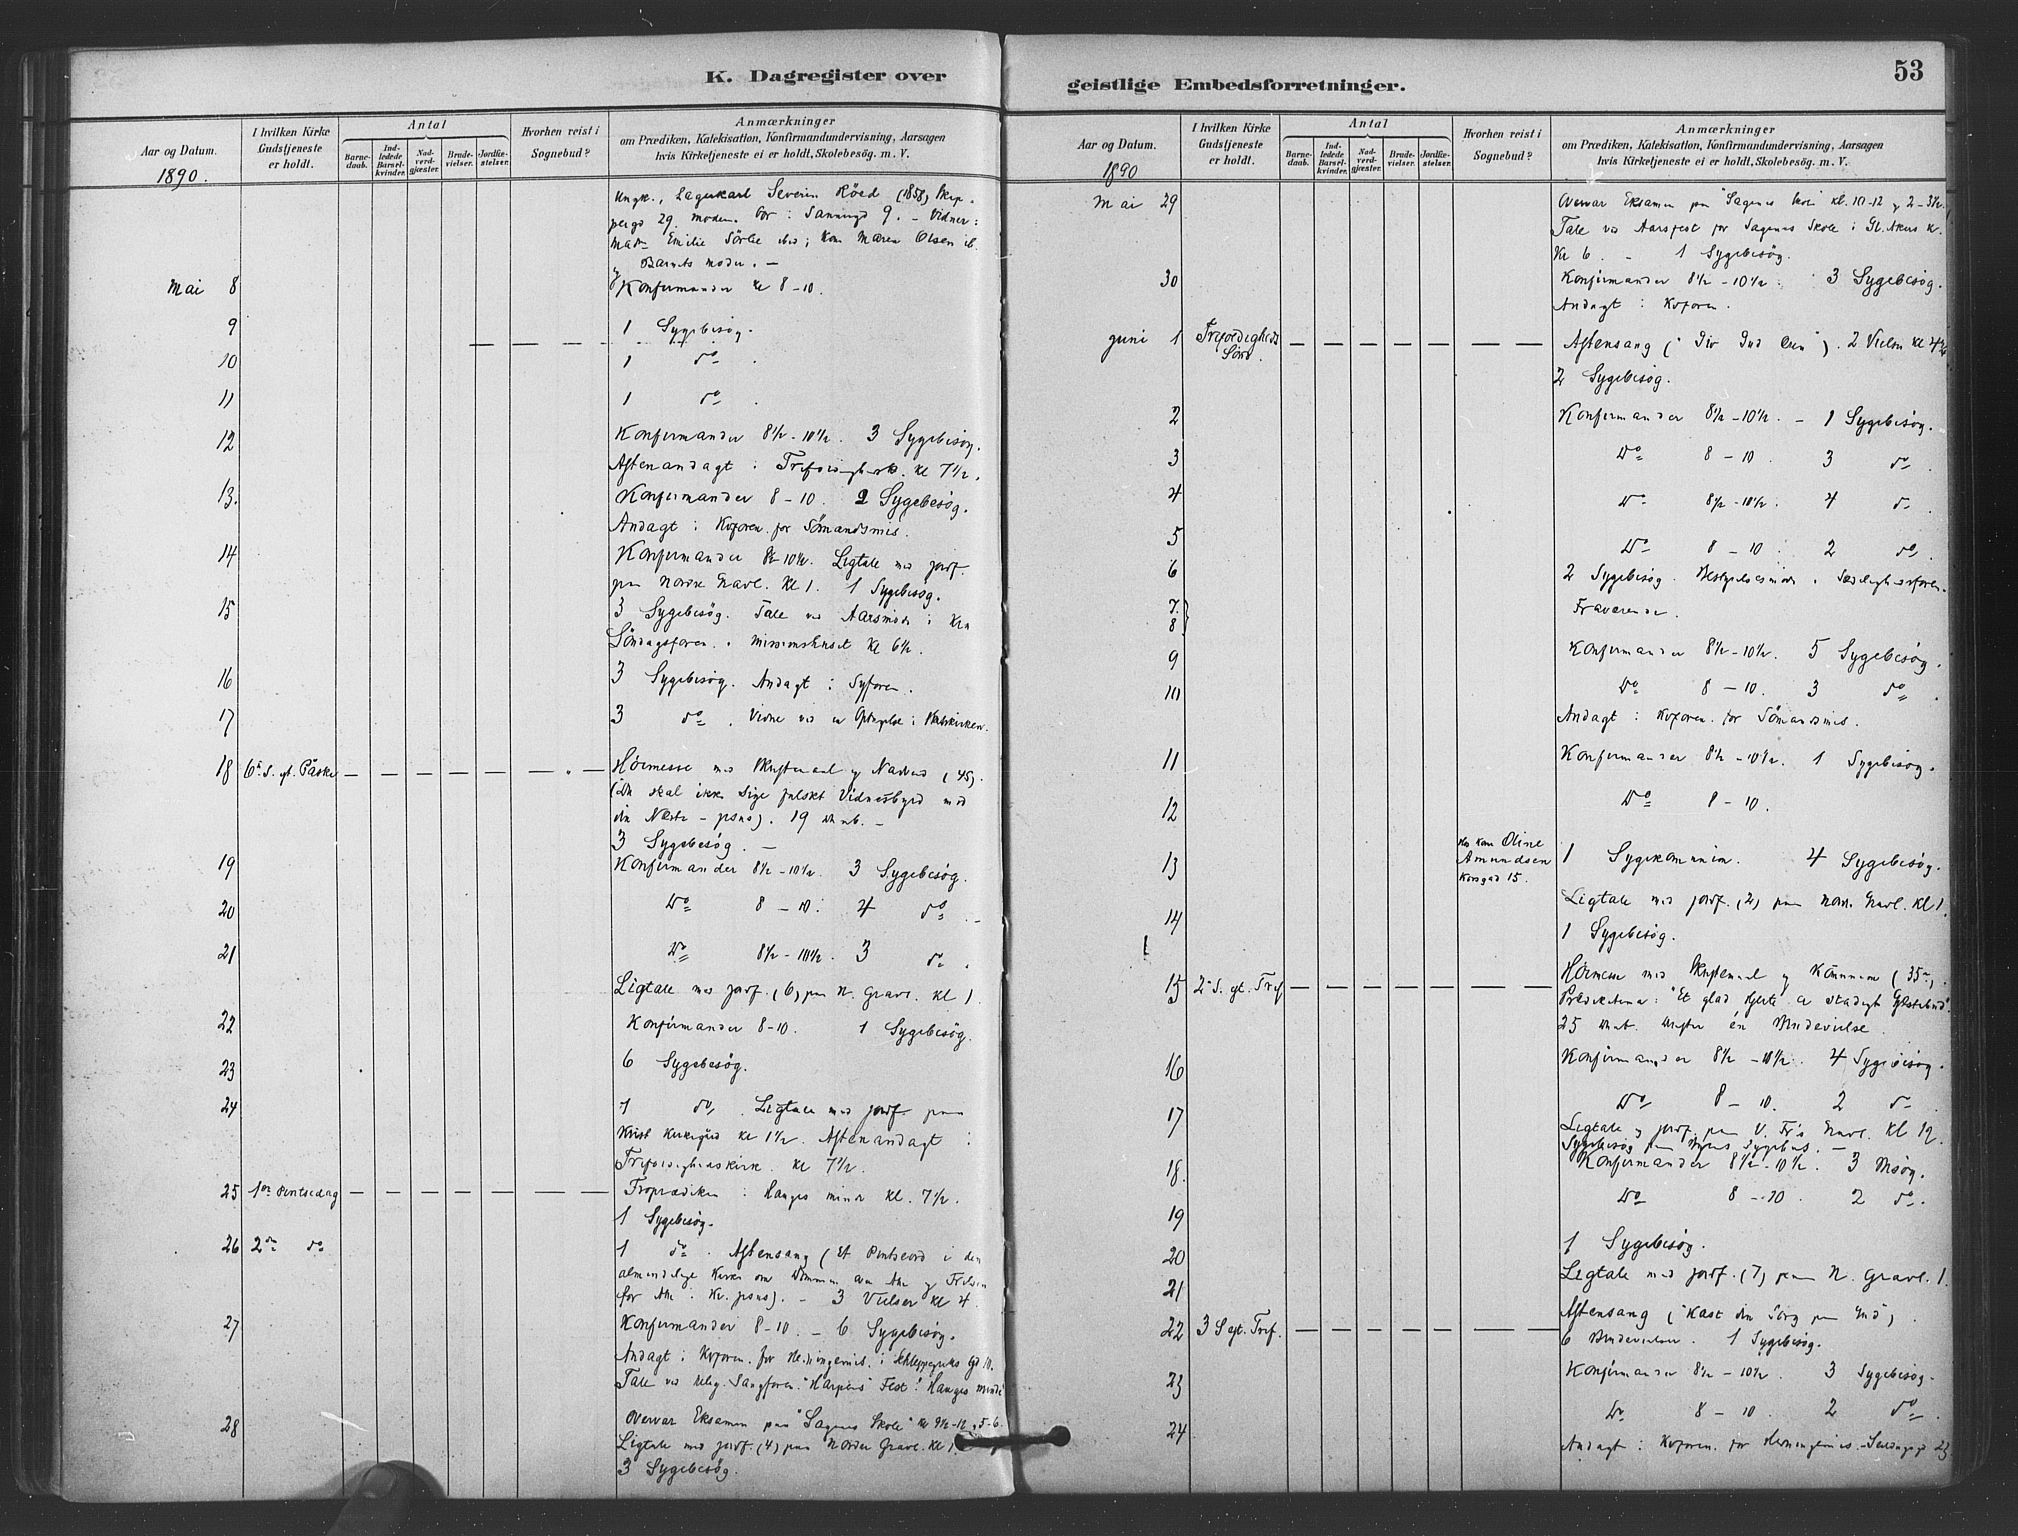 K. Dagregister over
Aar og Datum.
I hvilken Kirke Gudstjeneste er holdt.
Antal
Barnedaab.
Indledede Barselkvinder.
Nadverdgjæster.
Brudevielser.
Jordfæstelser.
Hvorhen reist i Sognebud?
Anmærkninger
om Prædiken, Katekisation, Konfirmandundervisning, Aarsagen
hvis Kirketjeneste ei er holdt, Skolebesög. m. V.
1890.
Ungk., Lagerkarl Severin Röed (1858)
29. moden. Bor i Sannergd 9. – Vidner:
Emilie Sörlie ibid; Kone Maren Olsen ib.
og Barnets moder. –
Mai 8 Konfirmander kl 8–10.
9 1 Sygebesög.
10 1 do.
11 1 do.
12 Konfirmander 8½–10½. 3 Sygebesög.
Aftenandagt i kl 7½.
13. Konfirmander 8–10. 2 Sygebesög.
Andagt i Kvforen. for Sömandsmis.
14 Konfirmander 8½–10½. Ligtale med jordf.
paa Nordre Gravl. Kl 1. 1 Sygebesög.
15 3 Sygebesög. Tale ved Aarsmöde i Kra
Söndagsforen. i missionshuset kl 6½.
16 3 Sygebesög. Andagt i Syforen.
17 3 do. Vidne ved en i
18 6te S. eft. Påske — — — — — — — Höimesse med Skriftemaal og Nadverd (45).
(Du skal ikke sige falskt Vidnesbyrd mod
din Næste – ). 19 Daab. –
3 Sygebesög. –
19 Konfirmander 8½–10½. 3 Sygebesög.
20 Do 8–10. 4 do
21 Do 8½–10½. 3 do.
Ligtale med jordf. (6) paa N. Gravl. kl 1.
22 Konfirmander 8–10. 1 Sygebesög.
23 6 Sygebesög.
24 1 do. Ligtale med jordf. paa
Krist Kirkegård kl 1½. Aftenandagt i
Trefoldighedskirk. kl 7½.
25 1ste Pintsedag — — — — — — — Froprædiken i Hauges minde kl. 7½.
1 Sygebesög.
26 2den do 1 do. Aftensang (Et Pintseord i den
almindelige Kirke om
for i ). – 3 Vielser kl 4.
27 Konfirmander 8–10. – 6 Sygebesög.
Andagt i Kvforen. for Hedningemis. i Schleppegrells gd 10.
Tale ved Sangforen. "Harpens" Fest i Hauges minde
28 Overvar Eksamen paa "Sagenes Skole" kl 9½–12, 5–6.
Ligtale med jordf. (4) paa Nordre Gravl. kl 1.
3 Sygebesög.
geistlige Embedsforretninger.
53
Aar og Datum.
I hvilken Kirke Gudstjeneste er holdt.
Antal
Barnedaab.
Indledede Barselkvinder.
Nadverdgjæster.
Brudevielser.
Jordfæstelser.
Hvorhen reist i Sognebud?
Anmærkninger
om Prædiken, Katekisation, Konfirmandundervisning, Aarsagen
hvis Kirketjeneste ei er holdt, Skolebesög. m. V.
1890
Mai 29 Overvar Eksamen paa Sagenes Skole kl. 10–12 og 2–3½.
Tale ved Aarsfest for Sagenes Skole i Gl. Akers K.
Kl 6. – 1 Sygebesög.
30 Konfirmander 8½–10½. 3 Sygebesög.
Andagt i Kvforen.
Juni 1 Trefoldigheds Sönd. — — — — — — — Aftensang ("Giv Gud Æren"). 2 Vielser kl 4½
2 Sygebesög.
2 Konfirmander 8½–10½. – 1 Sygebesög.
3 Do 8–10. 3 do.
4 Do 8½–10½. 4 do.
5 Do 8–10. 2 do.
6 2 Sygebesög. Bestyrelsesmöde i Sædelighedsforen.
7. 8 } Fraværende.
9 Konfirmander 8½–10½. 5 Sygebesög.
10 Do 8–10. 3 do.
Andagt i Kvforen. for Sömandsmis.
11 Konfirmander 8½–10½. 1 Sygebesög.
12 Do 8–10.
13 Hos Kone Oline Amundsen Korsgad 15. 1 Sygekommunion. 4 Sygebesög.
14 Ligtale med jordf. (2) paa Nordr. Gravl. Kl 1.
1 Sygebesög.
15 2 S. eft. Tref — — — — — — — Höimesse med Skriftemaal og Kommunion (35).
Prædiketema: "Et glad Hjerte er stadigt Gjæstebud".
25 Daab. Derefter én Brudevielse.
16 Konfirmander 8½–10½. 4 Sygebesög.
17 Do 8–10. 2 do.
Ligtale og jordf. paa V. Fr's Gravl. kl 12.
Sygebesög paa Sygehus. –
18. Konfirmander 8½–10½. 3
19 Do 8–10. 2 do.
20 1 Sygebesög.
21 Ligtale med jordf. (7) paa N. Gravl. 1.
22 3 S eft. Tref. — — — — — — — Aftensang ("Kast din Sorg paa Gud").
6 Brudevielser. 1 Sygebesög.
23 Konfirmander 8½–10½. 3 Sygebesög.
24 Do 8–10. 2 do.
Andagt i Kvforen. for Hedningemis.